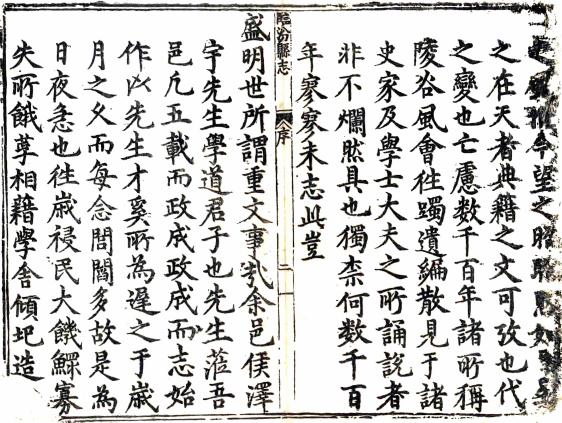 今望之昭昭
之在天者典籍之文可攷也代
之變也亡慮數千百年諸所稱
陵谷風會徃躅遺編散見于諸
史家及學士大夫之所誦說者
非不爛然具也獨柰何數千百
年寥寥未志此豈
臨汾縣志
序
二
盛明世所謂重文事哉余邑侯澤
宇先生學道君子也先生蒞吾
邑凢五載而政成政成而志始
作凶先生才奚所為遲之于歳
月之久而每念閭閻多故是為
日夜急也徃歳祲民大饑鰥寡
失所餓莩相藉學舍傾圯造